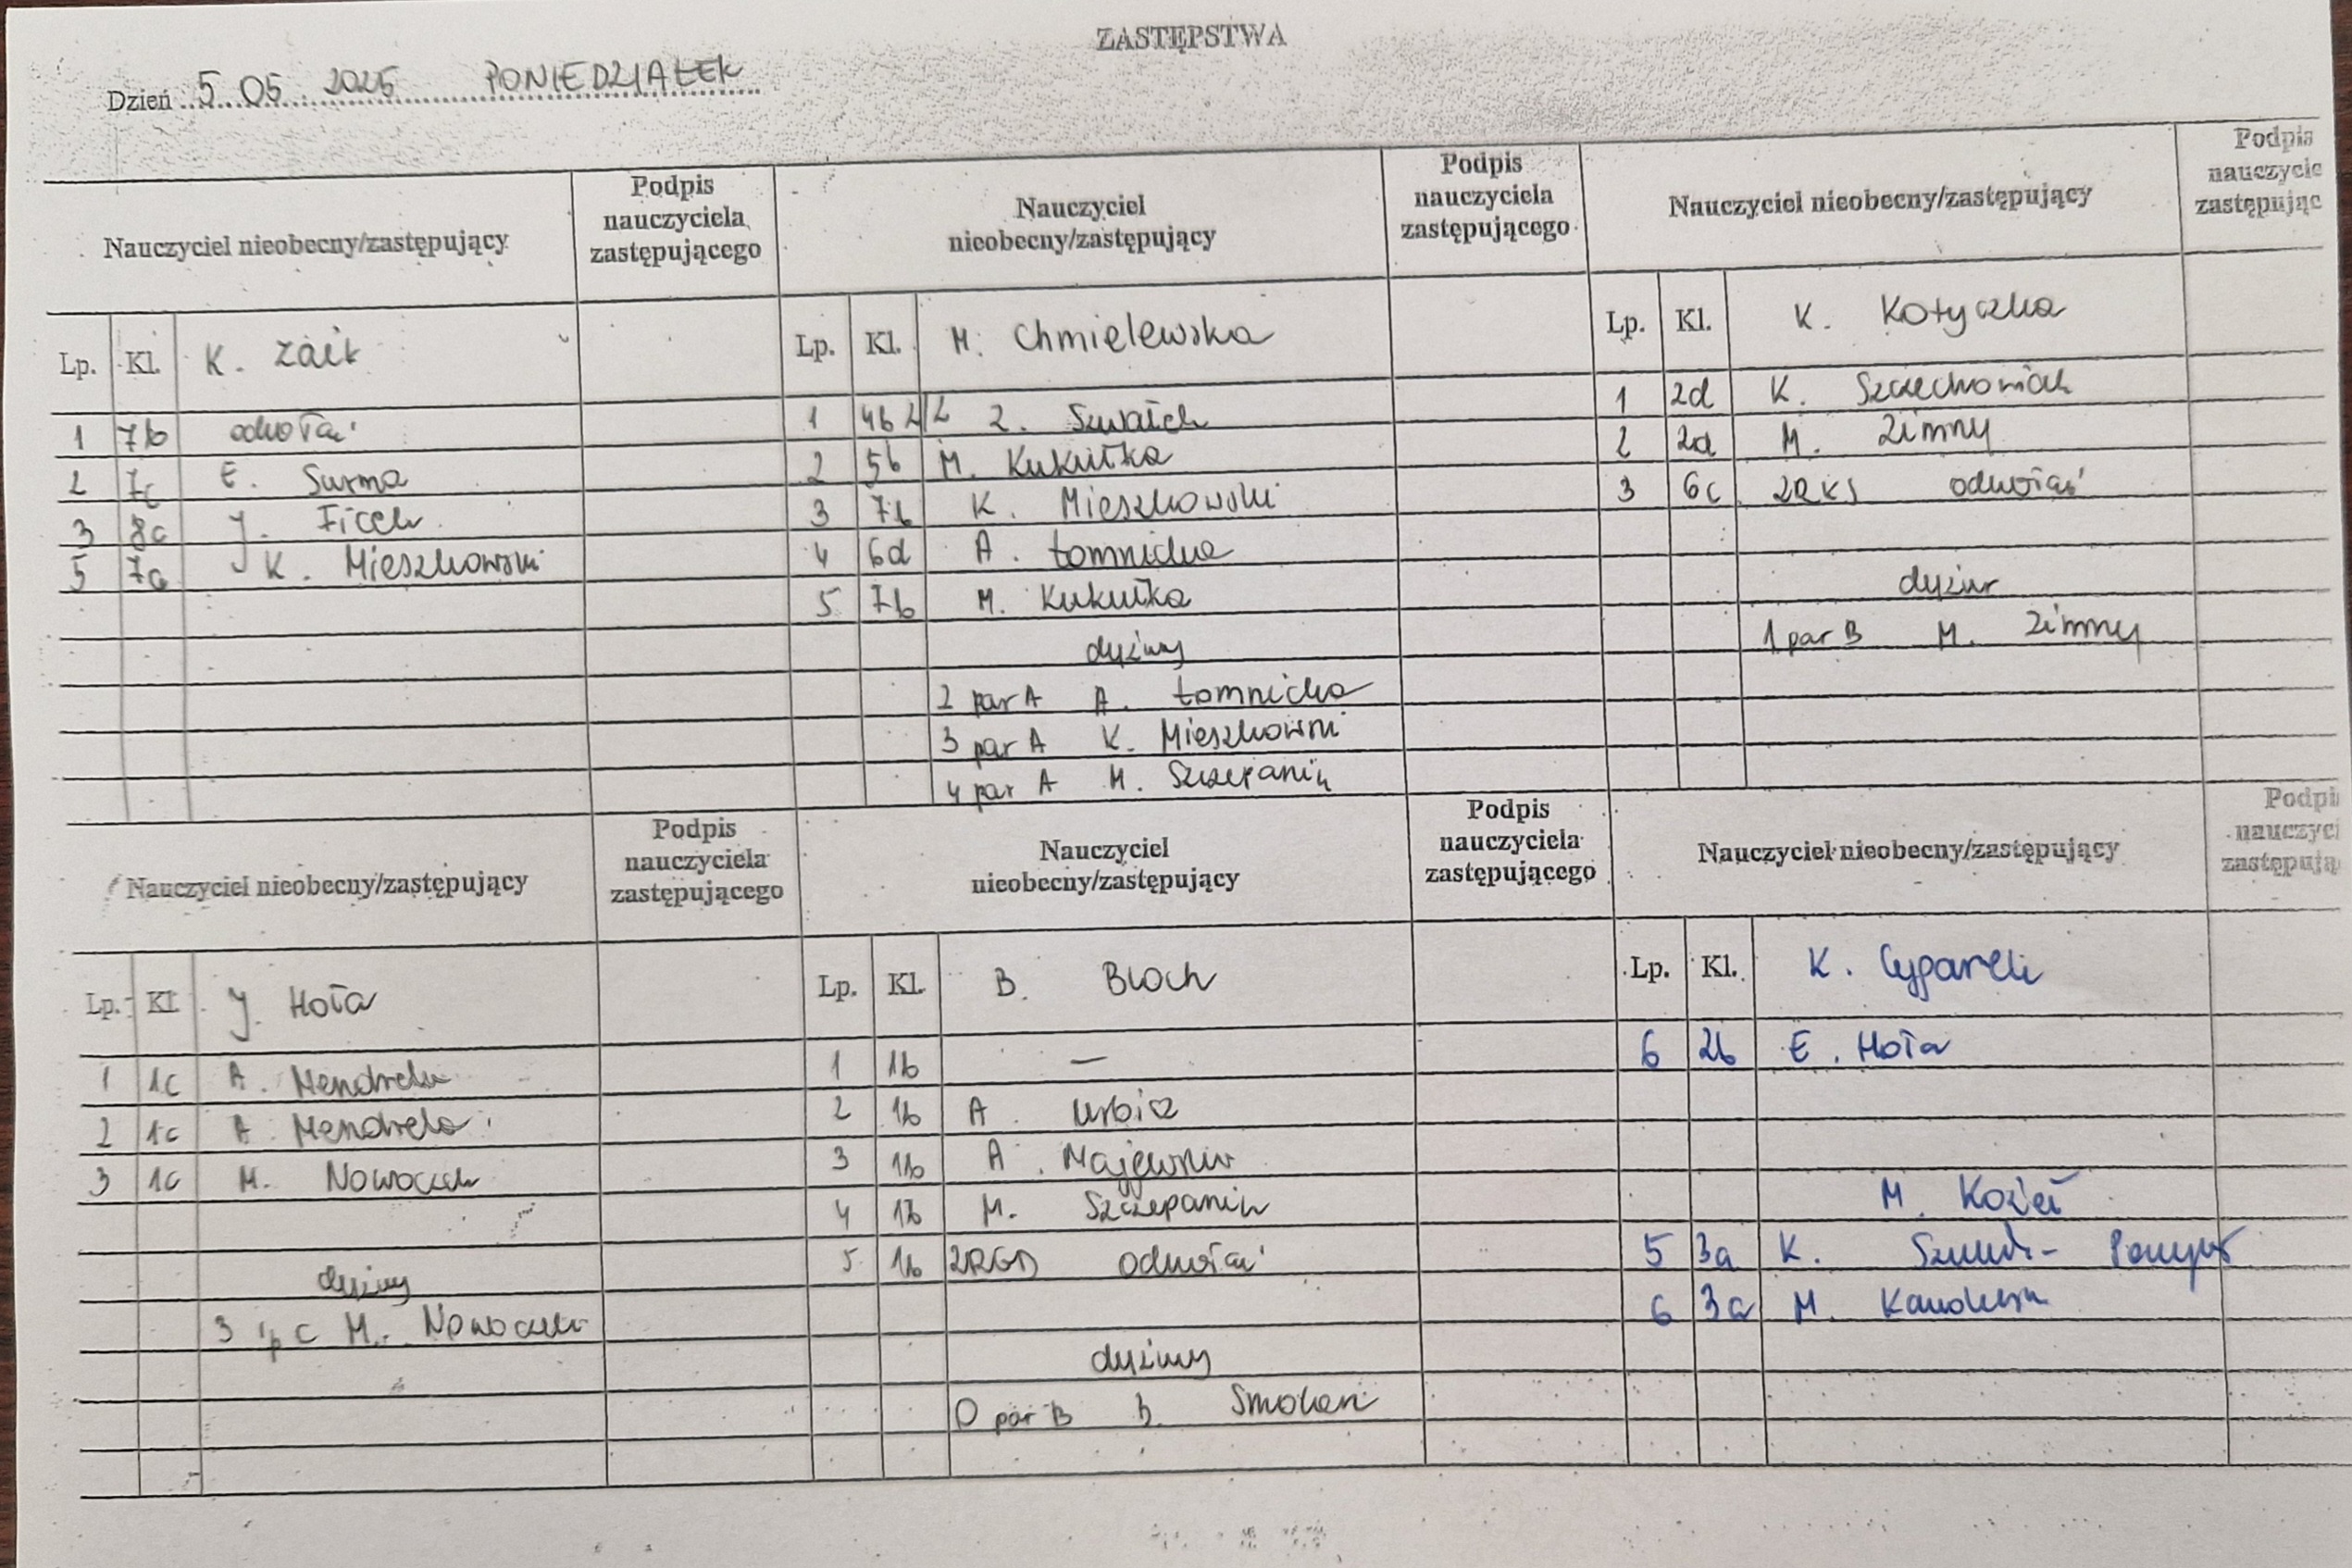 ZASTĘPSTWA
Dzień 5 05 2025 PONIEDZIAŁEK
Nauczyciel nieobecny/zastępujący
Podpis
nauczyciela
zastępującego
Lp. Kl. K. Zait
1 7b odwołać
2 7c E. Surma
3 8c J. Ficek
5 7a K. Mieszkowski
Nauczyciel
nieobecny/zastępujący
Podpis
nauczyciela
zastępującego
Lp. Kl. M. Chmielewska
1 4b Z.
2 5b M. Kukułka
3 7b K. Mieszkowski
4 6d A. Łomnicka
5 7b M. Kukułka
dyżury
2 par A A. Łomnicka
3 par A K. Mieszkowski
4 par A M. Szczepanik
Nauczyciel nieobecny/zastępujący
Podpis
nauczycie
zastępując
Lp. Kl. K. Kotyczka
1 2d K. Szczechowiak
2 2d M. Zimny
3 6c odwołać
dyżur
1 par B M. Zimny
Nauczyciel nieobecny/zastępujący
Podpis
nauczyciela
zastępującego
Lp. Kl. J. Hoła
1 1c A. Mendrela
2 1c A. Mendrela
3 1c M. Nowaczek
dyżury
3 p C M. Nowaczek
Nauczyciel
nieobecny/zastępujący
Podpis
nauczyciela
zastępującego
Lp. Kl. B. Bloch
1 1b —
2 1b A. Urbicz
3 1b A. Majewska
4 1b M. Szczepanik
5 1b odwołać
dyżury
0 par B B. Smolan
Nauczyciel nieobecny/zastępujący
Podpi
nauczyci
zastępują
Lp. Kl. K.
6 2b E. Hoła
M. Kozieł
5 3a K.
6 3a M.